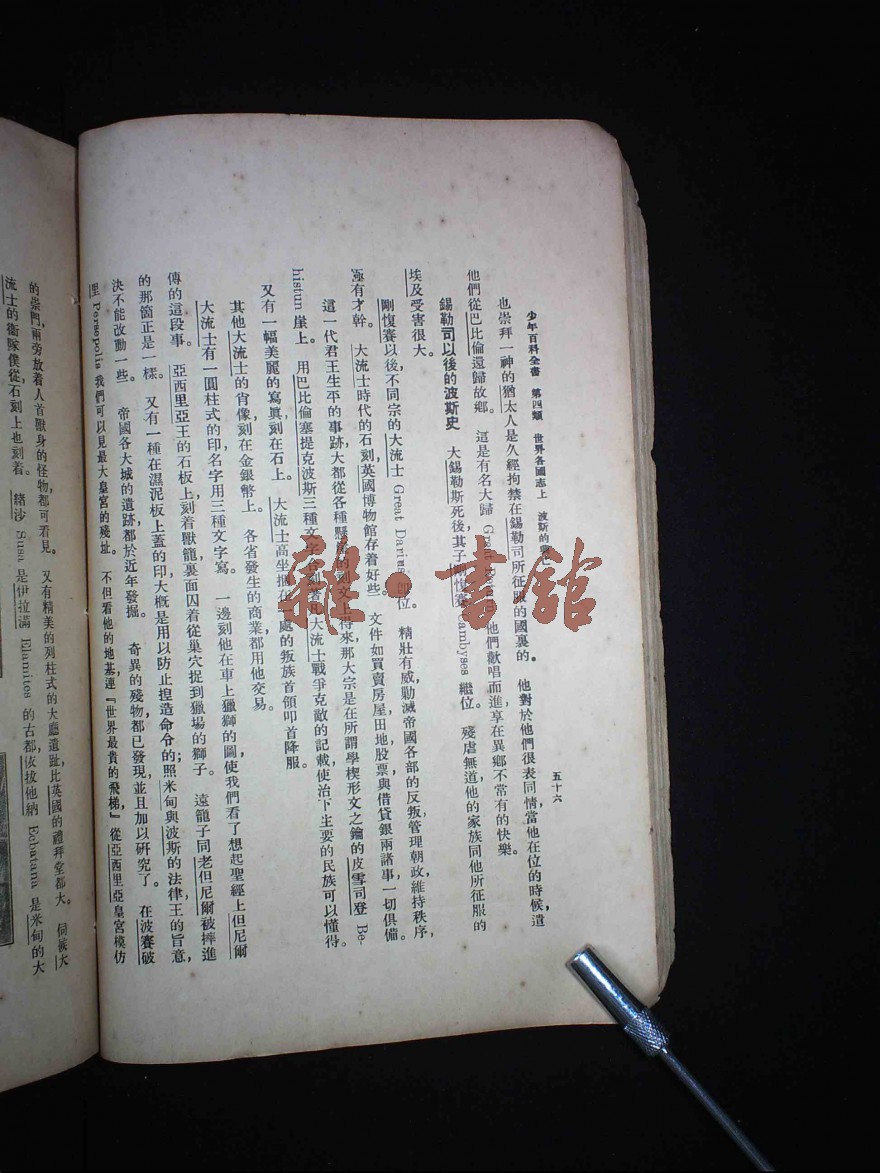 少年百科全書 第四類 世界各國志上 波斯的 五十六
也崇拜一神的猶太人是久經拘禁在錫勒司所征服的國裏的。 他對於他們很表同情當他在位的時候,遣
他們從巴比倫還歸故鄉。 這是有名大歸 他們歡唱而進享在異鄉不常有的快樂。
錫勒司以後的波斯史 大錫勒斯死後,其子剛愎賽 Cambyses 繼位。 殘虐無道,他的家族同他所征服的
埃及受害很大。
剛愎賽以後,不同宗的大流士 Great Darius 位。 精壯有威勦滅帝國各部的反叛,管理朝政,維持秩序,
極有才幹。 大流士時代的石刻英國博物館存着好些 文件如買賣房屋田地股票與借貸銀兩諸事,一切俱備。
這一代君王生平的事跡,大都從各種懸崖的刻文上得來,那大宗是在所謂學楔形文之鑰的皮雪司登 Be-
histun 崖上。 用巴比倫塞提克波斯三種文字合刻著凡大流士戰爭克敵的記載使治下主要的民族可以懂得。
又有一幅美麗的寫眞刻在石上。 大流士高坐 在 處的叛族首領叩首降服。
其他大流士的肖像,刻在金銀幣上。 各省發生的商業都用他交易。
大流士有一圓柱式的印名字用三種文字寫。 一邊刻他在車上獵獅的圖使我們看了想起聖經上但尼爾
傳的這段事。 亞西里亞王的石板上刻着獸籠裏面囚着從巢穴捉到獵場的獅子。 遠籠子同老但尼爾被摔進
的那箇正是一樣。 又有一種在濕泥板上蓋的印大概是用以防止捏造命令的;照米甸與波斯的法律王的旨意,
決不能改動一些。 帝國各大城的遺跡都於近年發掘。 奇異的殘物都已發現,並且加以硏究了。 在波賽破
里 Persepolis 我們可以見最大皇宮的殘址。 不但看他的地基連『世界最貴的飛梯,』從亞西里亞皇宮模仿
的崇門,兩旁放着人首獸身的怪物都可看見。 又有精美的列柱式的大廳遺趾,比英國的禮拜堂都大。 伺候大
流士的衞隊僕從,石刻上也刻着。 緒沙 Susa 是伊拉滿 Elamites 的古都,依拔他納 Ecbatana 是米甸的大
雜·書館